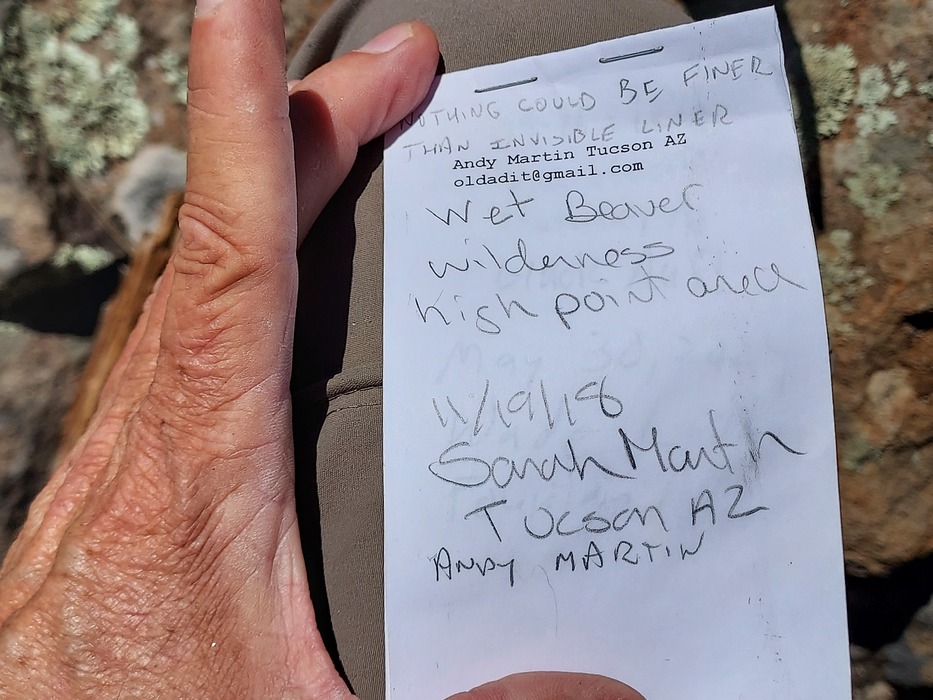 NOTHING COULD BE FINER
THAN INVISIBLE LINER
Andy Martin Tucson AZ
oldadit@gmail.com
Wet Beaver
wilderness
high point area
11/19/18
Sarah Martin
Tucson AZ
ANDY MARTIN